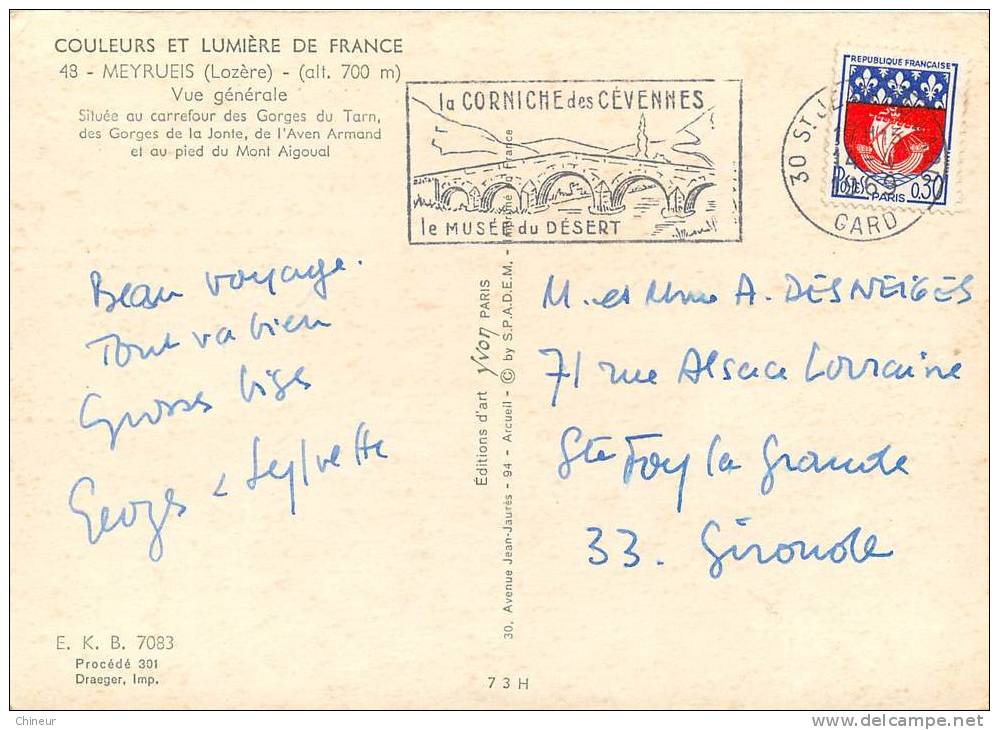 COULEURS ET LUMIÈRE DE FRANCE
48 - MEYRUEIS (Lozère) - (alt. 700 m)
Vue générale
Située au carrefour des Gorges du Tarn,
des Gorges de la Jonte, de l'Aven Armand
et au pied du Mont Aigoual
la CORNICHE des CÉVENNES
le MUSÉE du DÉSERT
30 ST JE
13
69
GARD
REPUBLIQUE FRANÇAISE
POSTES
PARIS
0,30
Beau voyage.
Tout va bien
Grosses bises
Georges & Sylvette
Editions d'art Yvon PARIS
30. Avenue Jean-Jaurès - 94 - Arcueil - © by S.P.A.D.E.M. - Imprimé France
M. et Mme A. DESNEIGES
71 rue Alsace Lorraine
Ste Foy la Grande
33. Gironde
E. K. B. 7083
Procédé 301
Draeger, Imp.
73H
Chineur
delcampe.net